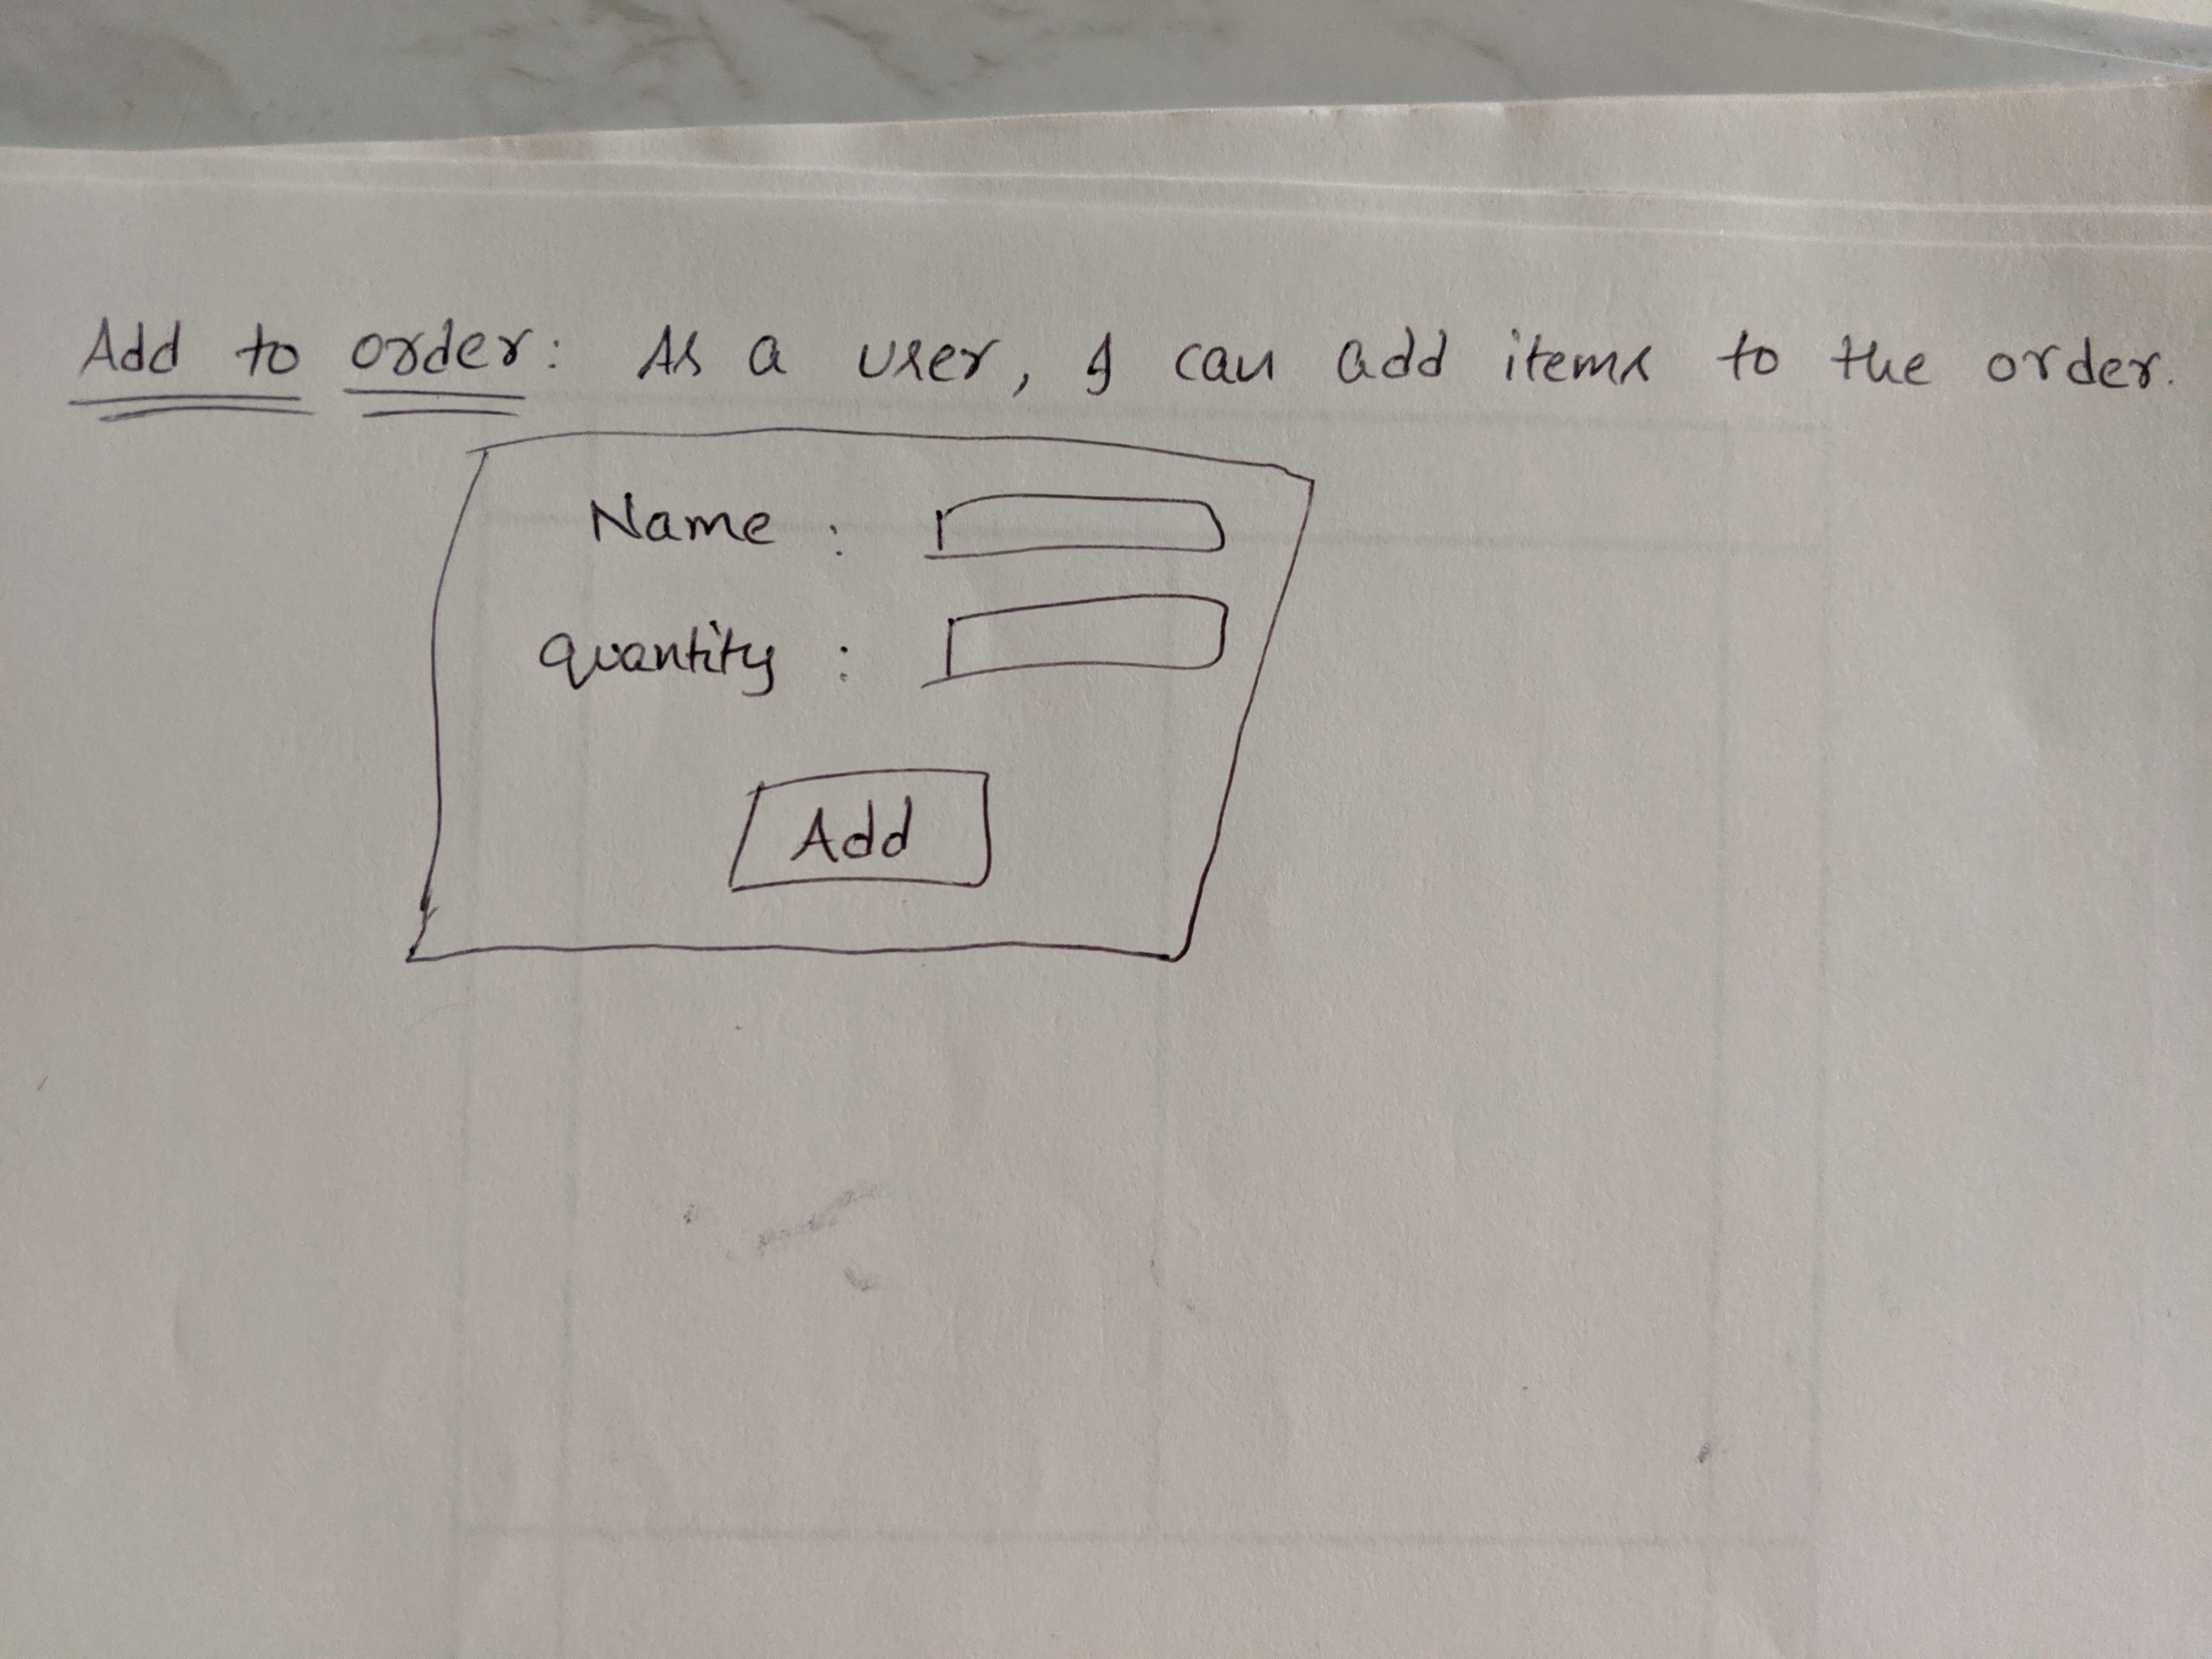 Add to order: As a user, I can add items to the order.
Name :
quantity :
Add